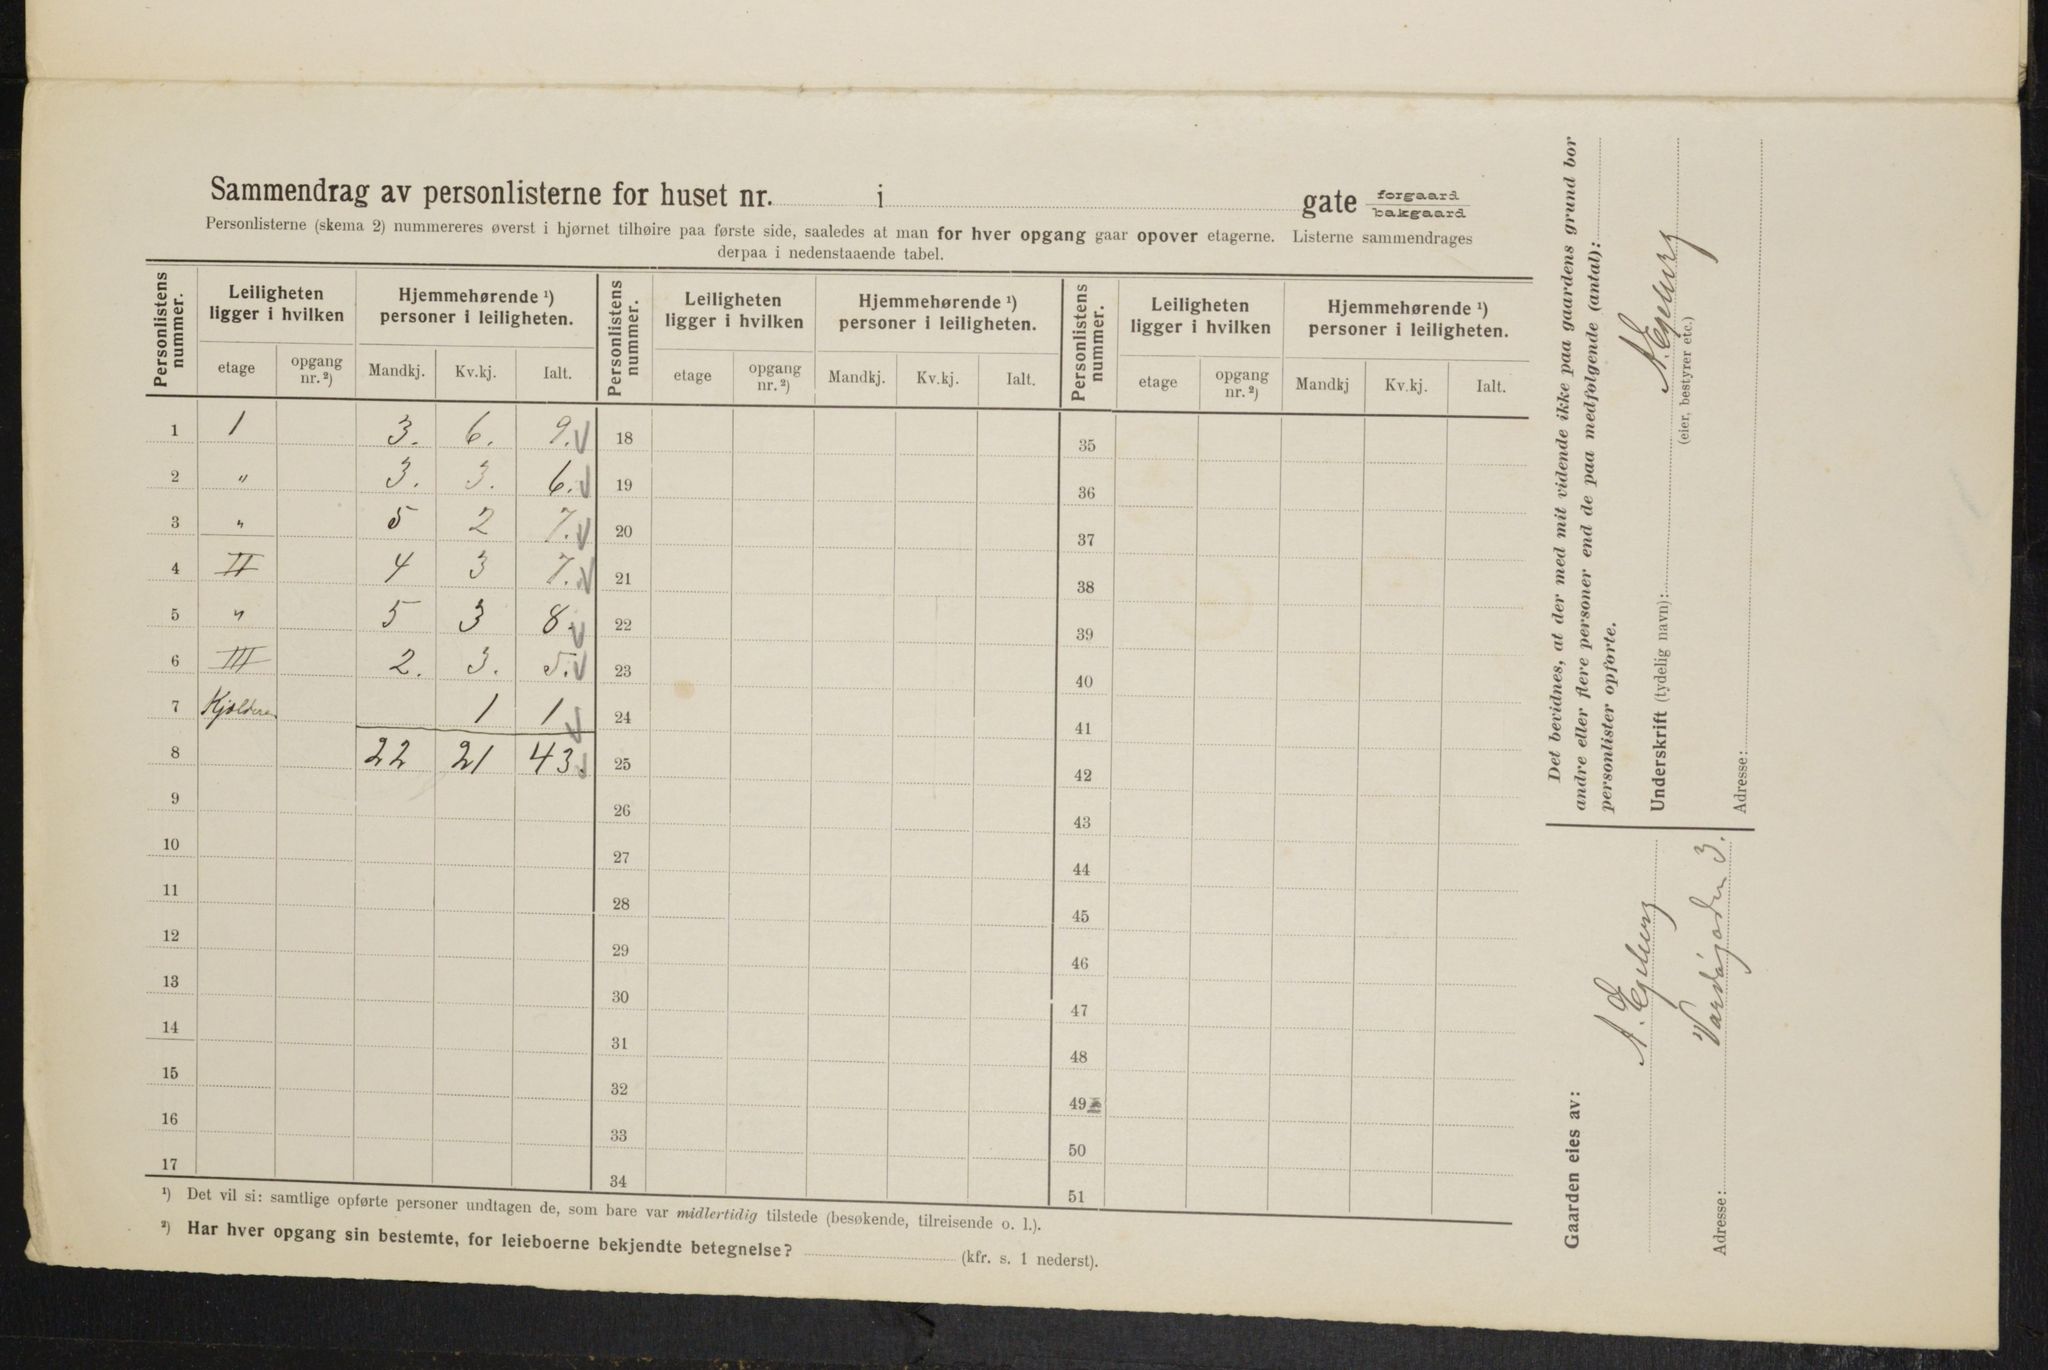 Sammendrag av personlisterne for huset nr. i gate forgaard bakgaard
Personlisterne (skema 2) nummereres øverst i hjørnet tilhøire paa første side, saaledes at man for hver opgang gaar opover etagerne. Listerne sammendrages
derpaa i nedenstaaende tabel.
Personlistens nummer. Leiligheten ligger i hvilken Hjemmehørende ¹) personer i leiligheten. Personlistens nummer. Leiligheten ligger i hvilken Hjemmehørende ¹) personer i leiligheten. Personlistens nummer. Leiligheten ligger i hvilken Hjemmehørende ¹) personer i leiligheten.
etage opgang nr. ²) Mandkj. Kv.kj. Ialt. etage opgang nr. ²) Mandkj. Kv.kj. Ialt. etage opgang nr. ²) Mandkj Kv.kj. Ialt.
1 1 3. 6. 9. 18 35
2 " 3. 3. 6. 19 36
3 " 5 2 7. 20 37
4 II 4 3 7. 21 38
5 " 5 3 8. 22 39
6 III 2. 3. 5. 23 40
7 Kjælderen 1 1 24 41
8 22 21 43. 25 42
9 26 43
10 27 44
11 28 45
12 29 46
13 30 47
14 31 48
15 32 49
16 33 50
17 34 51
¹) Det vil si: samtlige opførte personer undtagen de, som bare var midlertidig tilstede (besøkende, tilreisende o. l.).
²) Har hver opgang sin bestemte, for leieboerne bekjendte betegnelse? (kfr. s. 1 nederst).
Det bevidnes, at der med mit vidende ikke paa gaardens grund bor
andre eller flere personer end de paa medfølgende (antal):
personlister opførte.
Underskrift (tydelig navn):
(eier, bestyrer etc.)
Adresse:
Gaarden eies av:
Adresse: 3.